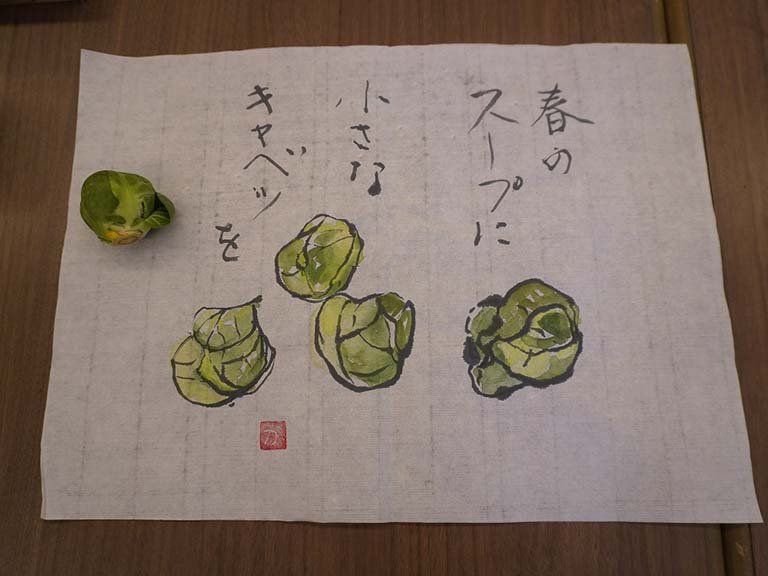 春の
スープに
小さな
キャベツ
を